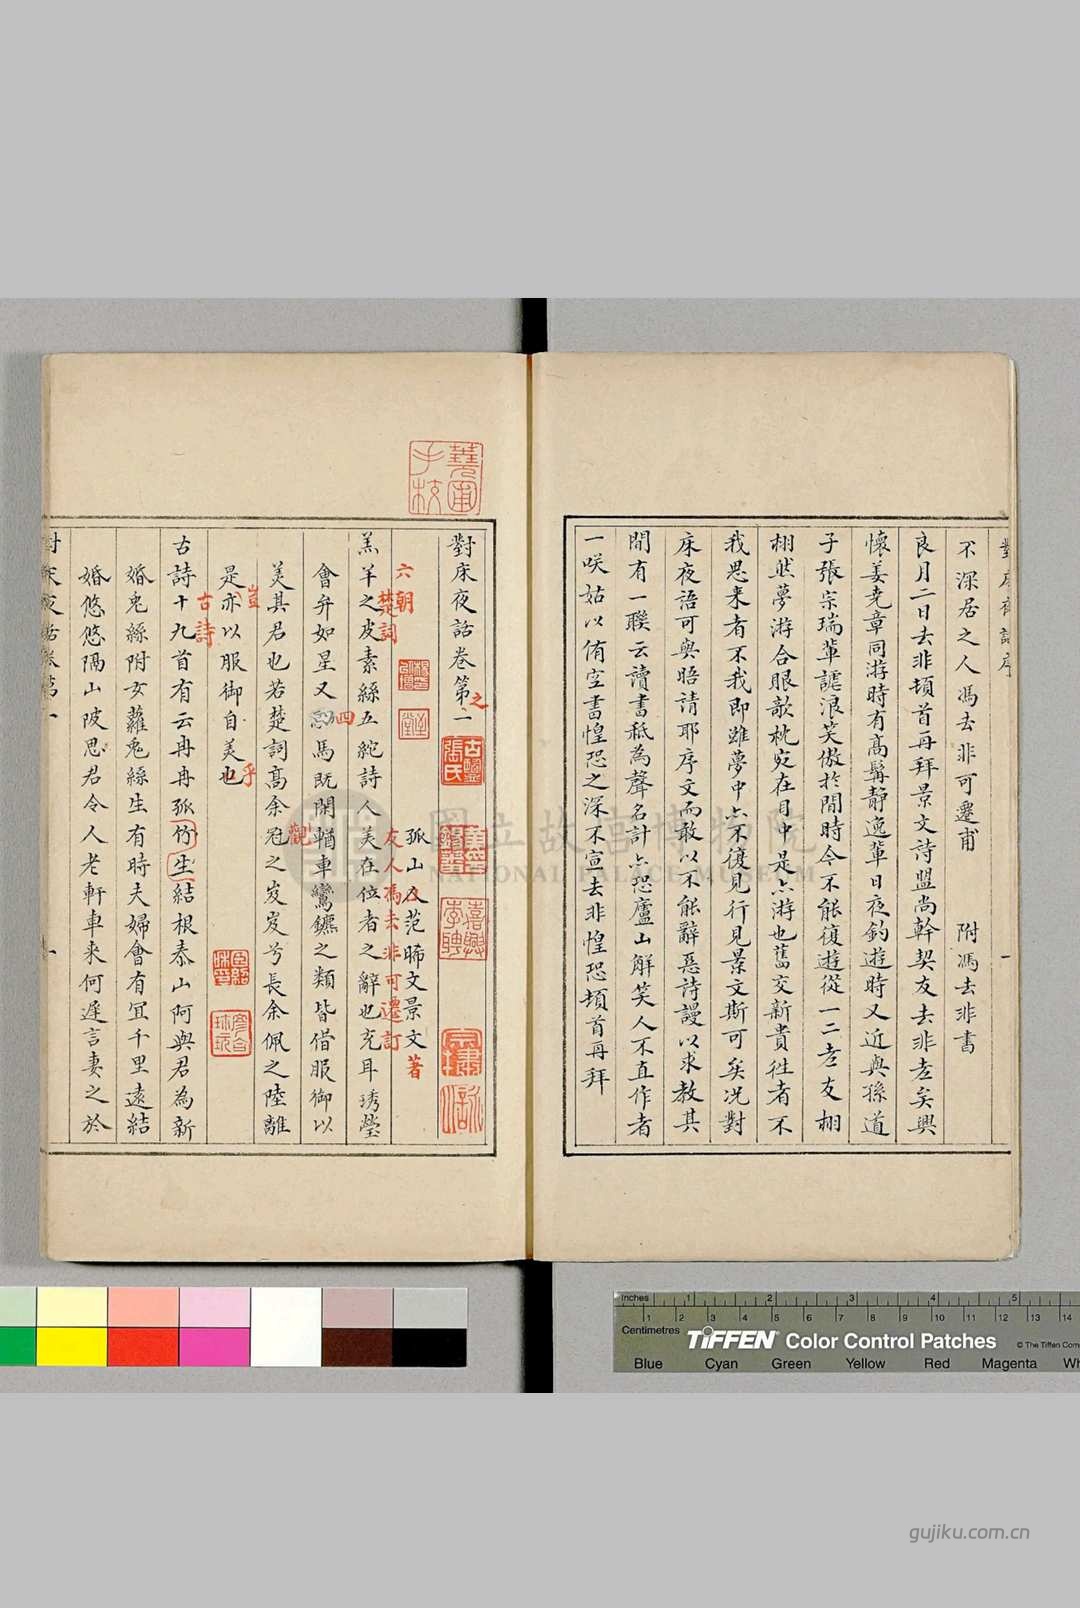 對床夜語序
一
不深居之人馮去非可遷甫 附馮去非書
良月二日去非頓首再拜景文詩盟尚幹契友去非老矣與
懷姜堯章同游時有高髯靜逸輩日夜釣遊時又近與孫道
子張宗瑞輩謔浪笑傲於閒時令不能復遊從一二老友栩
栩然夢游合眼欹枕宛在目中是亦游也舊交新貴徃者不
我思来者不我即雖夢中亦不復見行見景文斯可矣况對
床夜語可與晤請耶序文而敢以不能辭惡詩謾以求教其
間有一聯云讀書秪為聲名計亦恐廬山解笑人不直作者
一咲姑以侑空書惶恐之深不宣去非惶恐頓首再拜
羲甫手校
對床夜話卷第一
之
古鹽張氏
嘉興李聘
宗橚
詠川
六朝
孤山人范晞文景文著
友人馮去非可遷訂
楚詞
羔羊之皮素絲五紽詩人美在位者之辭也充耳琇瑩
會弁如星又
四
馬既閑輶車鸞鑣之類皆借服御以
觀
美其君也若楚詞高余冠之岌岌兮長余佩之陸離
豈
是亦以服御自美也
乎
古詩
古詩十九首有云冉冉孤竹生結根泰山阿與君為新
婚兎絲附女蘿兎絲生有時夫婦會有宜千里遠結
婚悠悠隔山陂思君令人老軒車来何遲言妻之於
對床夜話卷第一
一
國立故宮博物院
NATIONAL PALACE MUSEUM
Inches 1 2 3 4 5
1 2 3 4 5 6 7 8 9 10 11 12 13 14
Centimetres
TIFFEN® Color Control Patches
© The Tiffen Com
Blue Cyan Green Yellow Red Magenta Wh
gujiku.com.cn